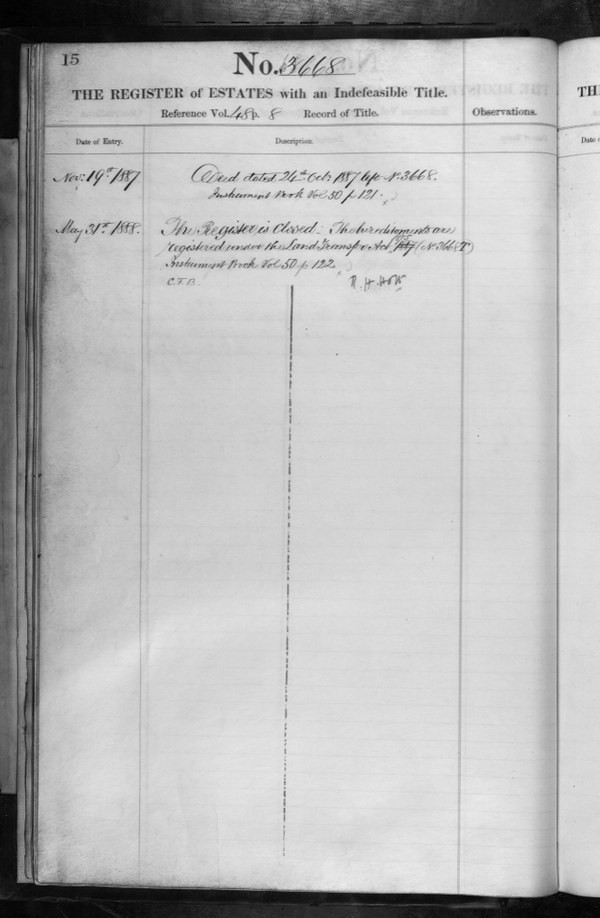 15
No. 3668
THE REGISTER of ESTATES with an Indefeasible Title.
Reference Vol. 48 p. 8 Record of Title.
Observations.
Date of Entry.
Description.
Nov: 19th 1887
Deed dated 24th Octr 1887 No 3668.
Instrument Book Vol 50 p 121.
May 31st 1888.
The Register is Closed: The hereditaments are
registered under the Land Transfer Act (No 3668T)
Instrument Book Vol 50 p 122
C.F.B.
TH
Date o